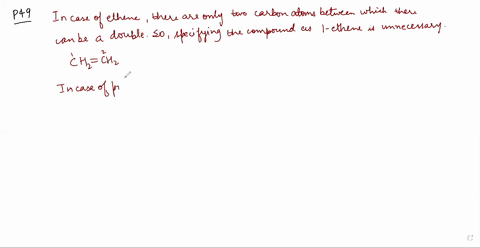 P49 In case of ethene, there are only two carbon atoms between which there
can be a double. So, specifying the compound as 1-ethene is unnecessary.
1 2
CH2=CH2
In case of pr